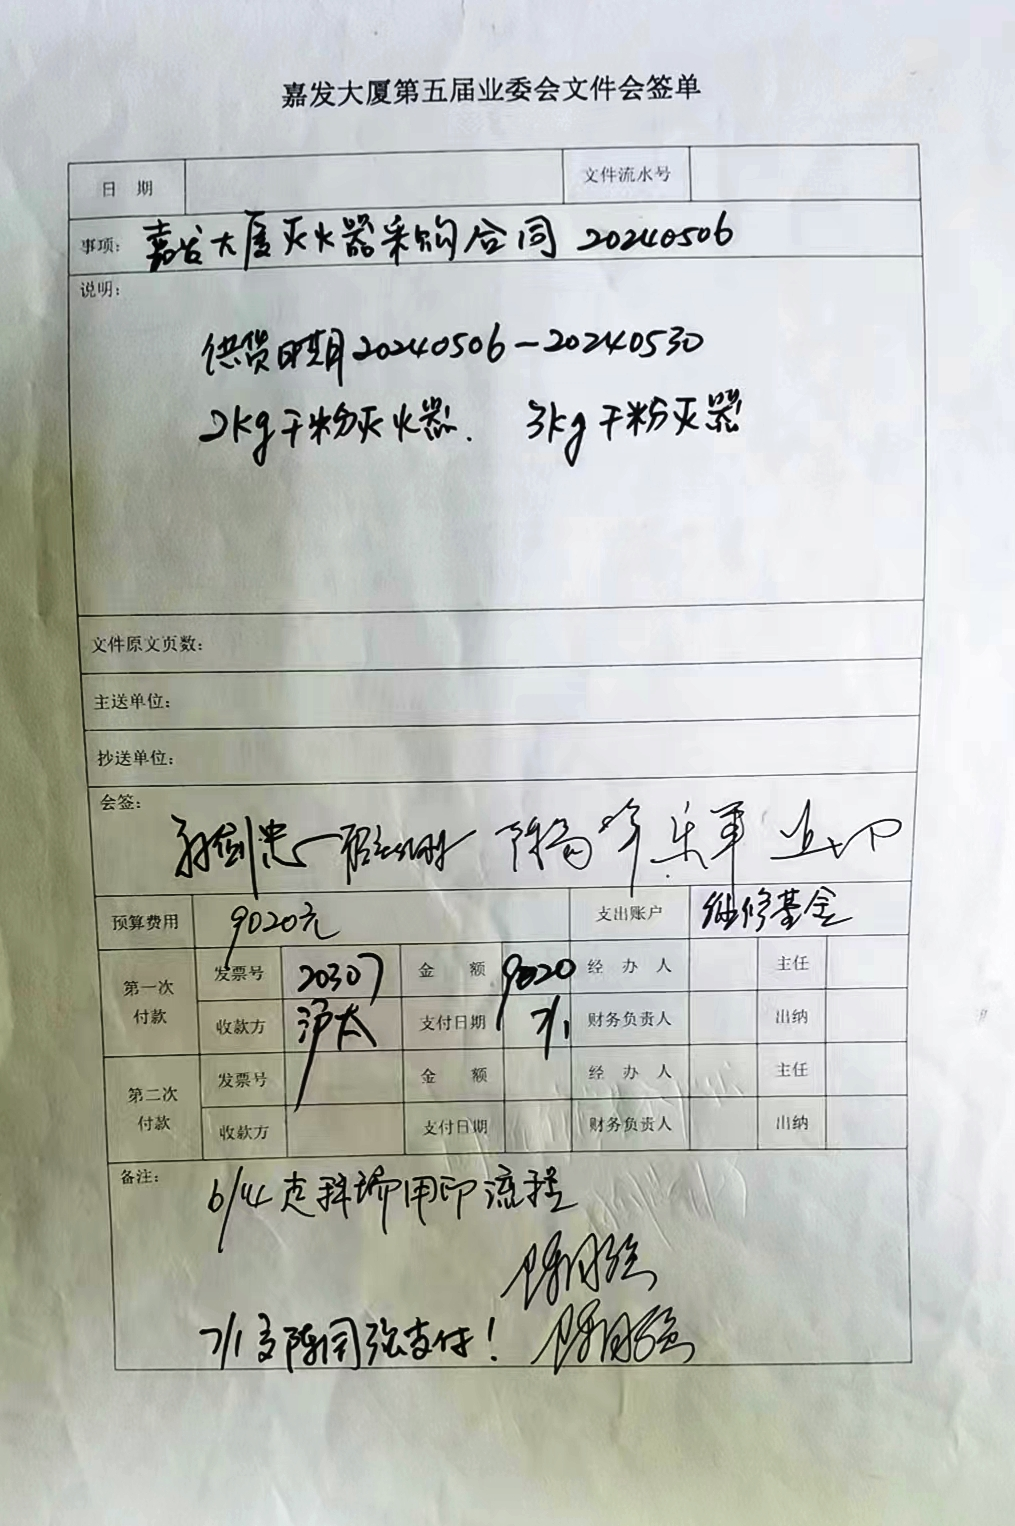 嘉发大厦第五届业委会文件会签单
日 期 文件流水号
事项: 嘉发大厦灭火器采购合同 20240506
说明:
供货日期20240506-20240530
2kg干粉灭火器. 3kg干粉灭器
文件原文页数:
主送单位:
抄送单位:
会签:
预算费用 9020元 支出账户 维修基金
第一次付款 发票号 20307 金 额 9020 经 办 人 主任
收款方 沪太 支付日期 7/1 财务负责人 出纳
第二次付款 发票号 金 额 经 办 人 主任
收款方 支付日期 财务负责人 出纳
备注:
6/14 走 用印流程
7/1 陈同强支付!